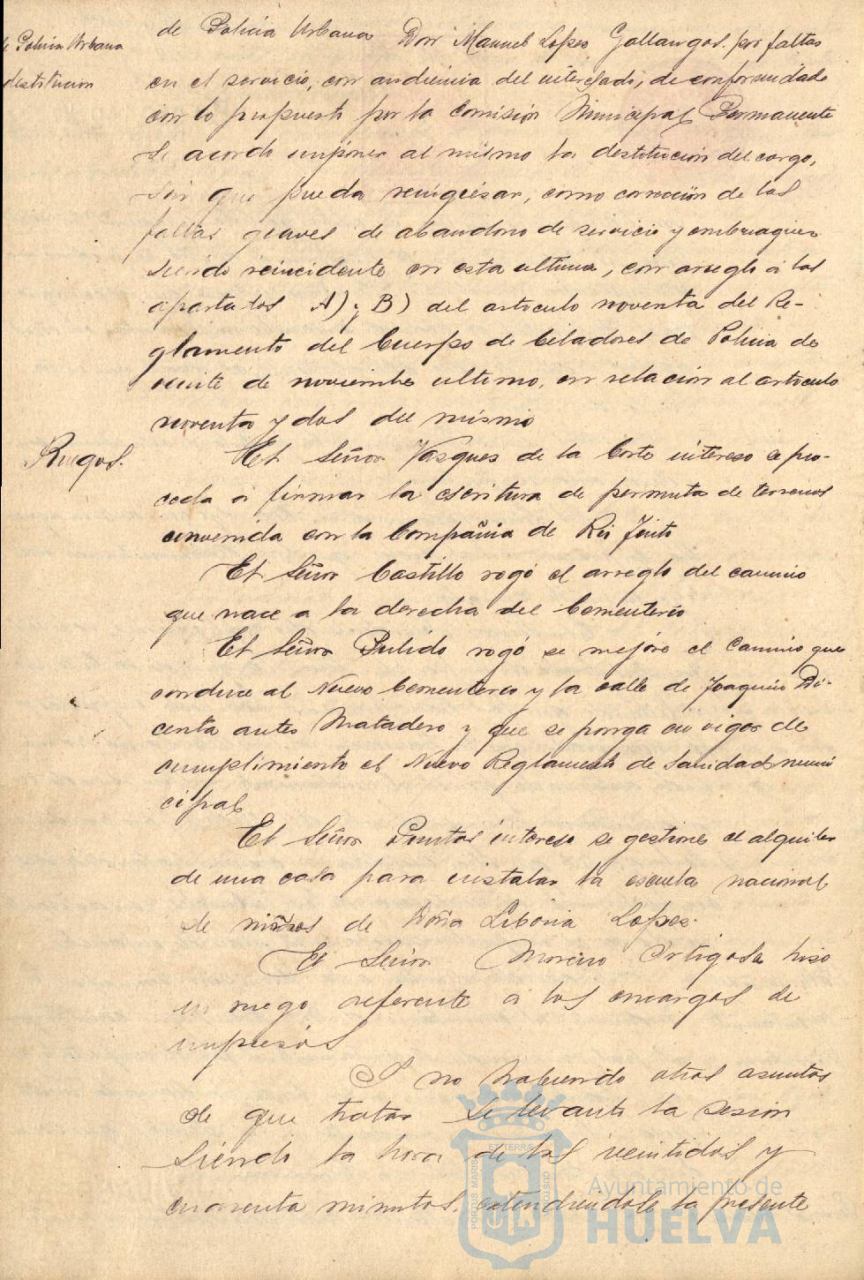 de Policia Urbana
destitucion
de Policia Urbana Don Manuel Lopez Gallangos. por faltas
en el servicio, con audiencia del interesado, de conformidad
con lo propuesto por la Comisión Municipal Permanente
se acordó imponer al mismo la destitución del cargo,
sin que pueda reingresar, como corrección de las
faltas graves de abandono de servicio y embriaguez
siendo reincidente en esta ultima, con arreglo á los
apartados A) y B) del articulo noventa del Re-
glamento del Cuerpo de Celadores de Policia de
veinte de noviembre ultimo, en relación al articulo
noventa y dos del mismo
Ruegos.
El Señor Vasques de la Corte intereso se pro-
ceda a firmar la escritura de permuta de terrenos
convenida con la Compañia de Rio Tinto
El Señor Castillo rogó el arreglo del camino
que nace a la derecha del Cementerio
El Señor Pulido rogó se mejore el camino que
conduce al Nuevo Cementerio y la calle de Joaquin Di-
centa antes Matadero y que se ponga en vigor de
cumplimiento el Nuevo Reglamento de Sanidad muni
cipal
El Señor intereso se gestione el alquiler
de una casa para instalar la escuela nacional
de niños de Doña Liboria Lopez.
El Señor Moreno Ortigosa hizo
un ruego referente a los encargos de
impresos
Y no habiendo otros asuntos
de que tratar se levantó la sesión
siendo la hora de las veintidos y
cuarenta minutos, extendiendose la presente
PORTUS MARIS ET TERRAE CUSTODIA
Ayuntamiento de
HUELVA